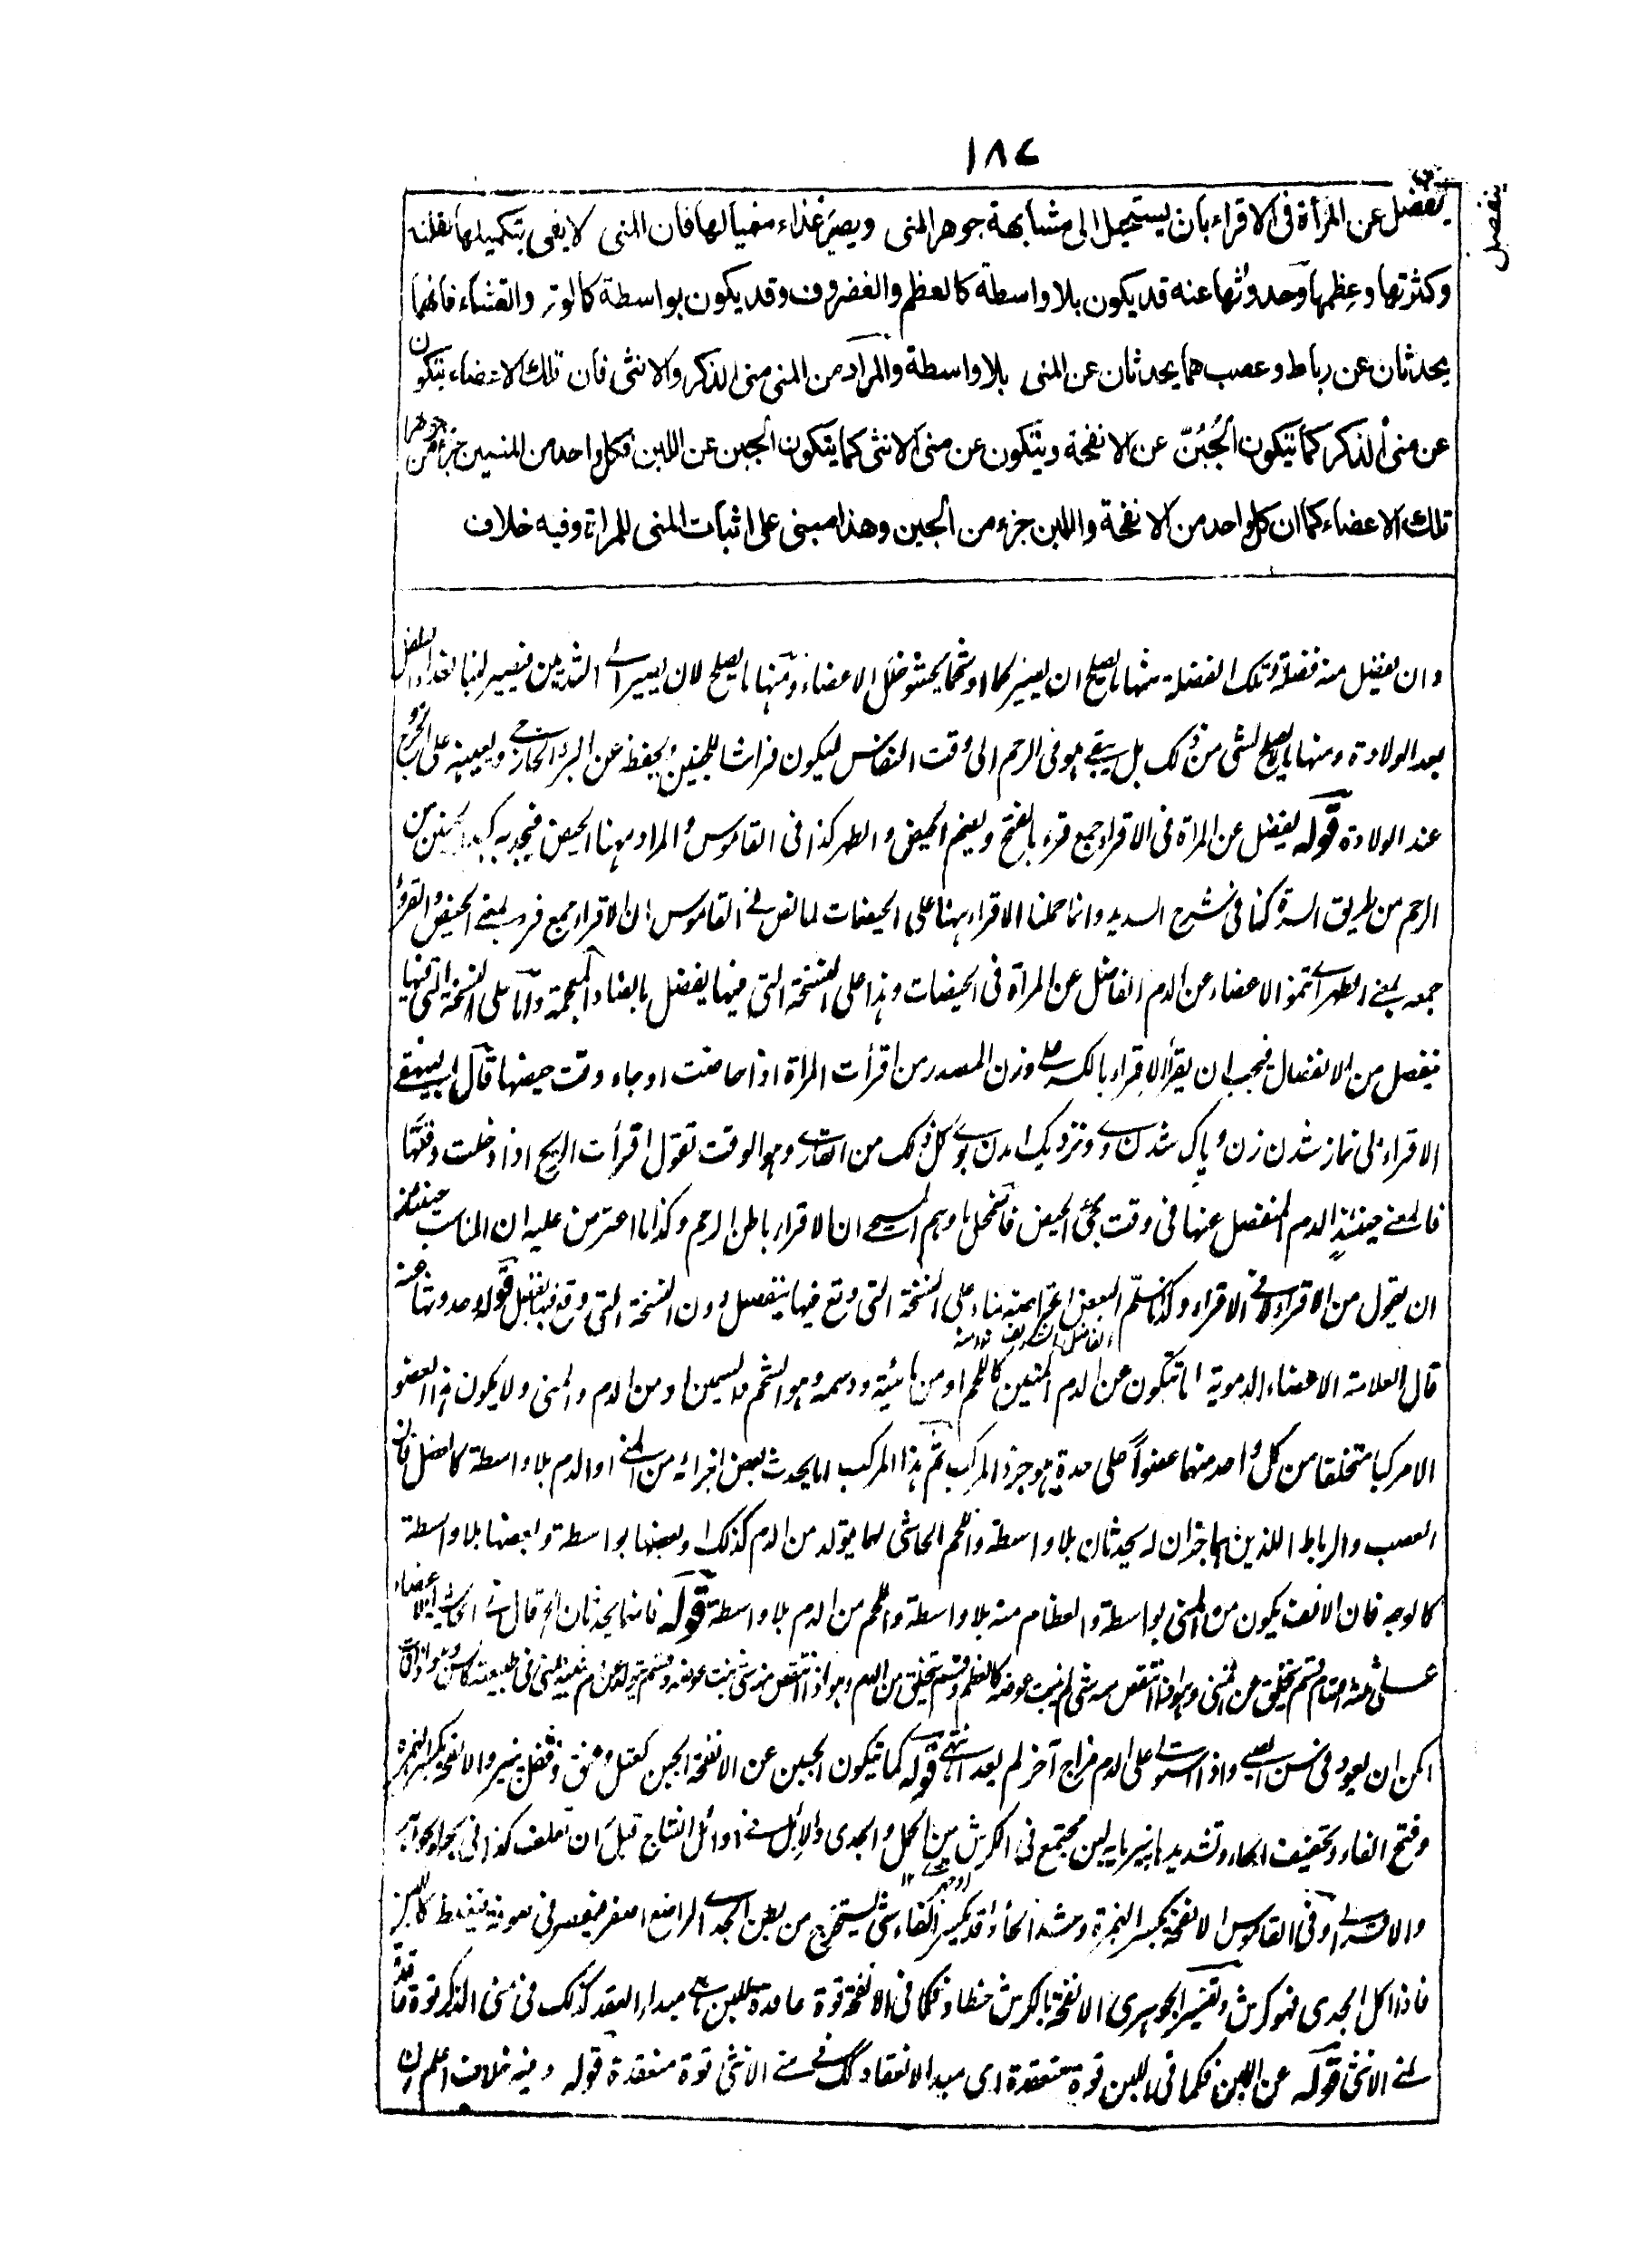 ١٨٧
ينفصل
يفضل عن المرأة فى الاقراء بان يستحيل الى مشابهة جوهر المنى ويصير غذاء منميا لها فان المنى لا يفى بتكميلها لقلته
وكثرتها وعظمها وحدوثها عنه قد يكون بلا واسطة كالعظم والغضروف وقد يكون بواسطة كالوتر والغشاء فانهما
يحدثان عن رباط وعصب هما يحدثان عن المنى بلا واسطة والمراد من المنى منى الذكر والانثى فان تلك الاعضاء يتكون
عن منى الذكر كما يتكون الجبن عن الانفحة ويتكون عن منى الانثى كما يتكون الجبن عن اللبن فكل واحد من المنيين جزء من جوهر
تلك الاعضاء كما ان كل واحد من الانفحة واللبن جزء من الجبن وهذا مبنى على اثبات المنى للمراة وفيه خلاف
وان يفضل منه فضلة وتلك الفضلة منها ما يصلح ان يصير لحما او شحما يحشو خلل الاعضاء ومنها ما يصلح لان يصير الى الثديين فيصير لبنا لغذاء الطفل
بعد الولادة ومنها ما لا يصلح لشى من ذلك بل يبقى هو فى الرحم الى وقت النفاس ليكون فراشا للجنين يحفظ عن البرد الخارجى ويعينه على الخروج
عند الولادة قوله يفضل عن المراة فى الاقراء جمع قرء بالفتح ويضم الحيض والطهر كذا فى القاموس والمراد ههنا الحيض فيجذبه كبد الجنين من
الرحم من طريق السرة كذا فى شرح السديد وانما حملنا الاقراء ههنا على الحيضات لما نص فى القاموس ان الاقراء جمع قرء بمعنى الحيض والقروء
جمعه بمعنى الطهر اى تنمو الاعضاء عن الدم الفاضل عن المراة فى الحيضات وهذا على النسخة التى فيها يفضل بالضاد المعجمة واما على النسخة التى فيها
ينفصل من الانفصال فيجب ان يقرأ الاقراء بالكسر على وزن المصدر من اقرأت المراة اذا حاضت او جاء وقت حيضها قال البيهقى
الاقراء بى نماز شدن زن و پاك شدن وى ونزديك امدن بوى كل ذلك من القارى وهو الوقت تقول اقرأت الريح اذا دخلت وقتها
فالمعنى حينئذ الدم المنفصل عنها فى وقت مجئ الحيض فاضمحل ما وهم المسيحى ان الاقراء باطن الرحم وكذا ما اعترض عليه ان المناسب حينئذ
ان يقول من الاقراء لا فى الاقراء وكذا سلم البعض اعتراضه بناء على النسخة التى وقع فيها ينفصل دون النسخة التى وقع فيها يفضل قوله وحدوثها عنه
قال العلامة الاعضاء الدموية اما تتكون عن الدم المتين كاللحم او من مائيته ودسمه وهو الشحم والسمين او من الدم والمنى ولا يكون هذا العضو
الا مركبا متخلقا من كل واحد منهما عضوا على حدة هو جزء المركب ثم هذا المركب اما يحدث بعض اجزائه من المنى او الدم بلا واسطة كالعضل فان
العصب والرباط اللذين هما جزءان له يحدثان بلا واسطة واللحم الحاشى لهما يتولد من الدم كذلك او بعضها بواسطة وبعضها بلا واسطة
كالوجه فان الانف يكون من المنى بواسطة والعظام منه بلا واسطة واللحم من الدم بلا واسطة قوله فانهما يحدثان الخ قال فى الحاشية الاعضاء
على ثلثة اقسام قسم يتخلق من المنى وهو اذا انتقص منه شى لم ينبت عوضه كالعظم وقسم يتخلق من الدم وهو اذا انتقص منه شى ينبت عوضه
امكن ان يعود فى سن الصبى واذا استولى على الدم مزاج آخر لم يعد انتهى قوله كما يتكون الجبن عن الانفحة الجبن كقفل وعنق پنير والانفحة بكسر الهمزة
وفتح الفاء وتخفيف الحاء وتشديدها پنير مايه لبن مجتمع فى الكرش من الحمل والجدى والابل فى اوائل النتاج قبل ان تعلف كذا فى بحر الجواهر
وفى القاموس الانفحة بكسر الهمزة وشد الحاء وقد يكسر الفاء شى يستخرج من بطن الجدى الراضع اصفر فيعصر فى صوفة فيغلظ كالجبن
فاذا اكل الجدى فهو كرش وتفسير الجوهرى الانفحة بالكرش خطاء فكما فى الانفحة قوة عاقدة للبن هى مبدا العقد كذلك فى منى الذكر قوة عاقدة
لمنى الانثى قوله عن اللبن فكما فى اللبن قوة منعقدة اى مبدا الانعقاد كذلك فى منى الانثى قوة منعقدة قوله وفيه خلاف اعلم ان